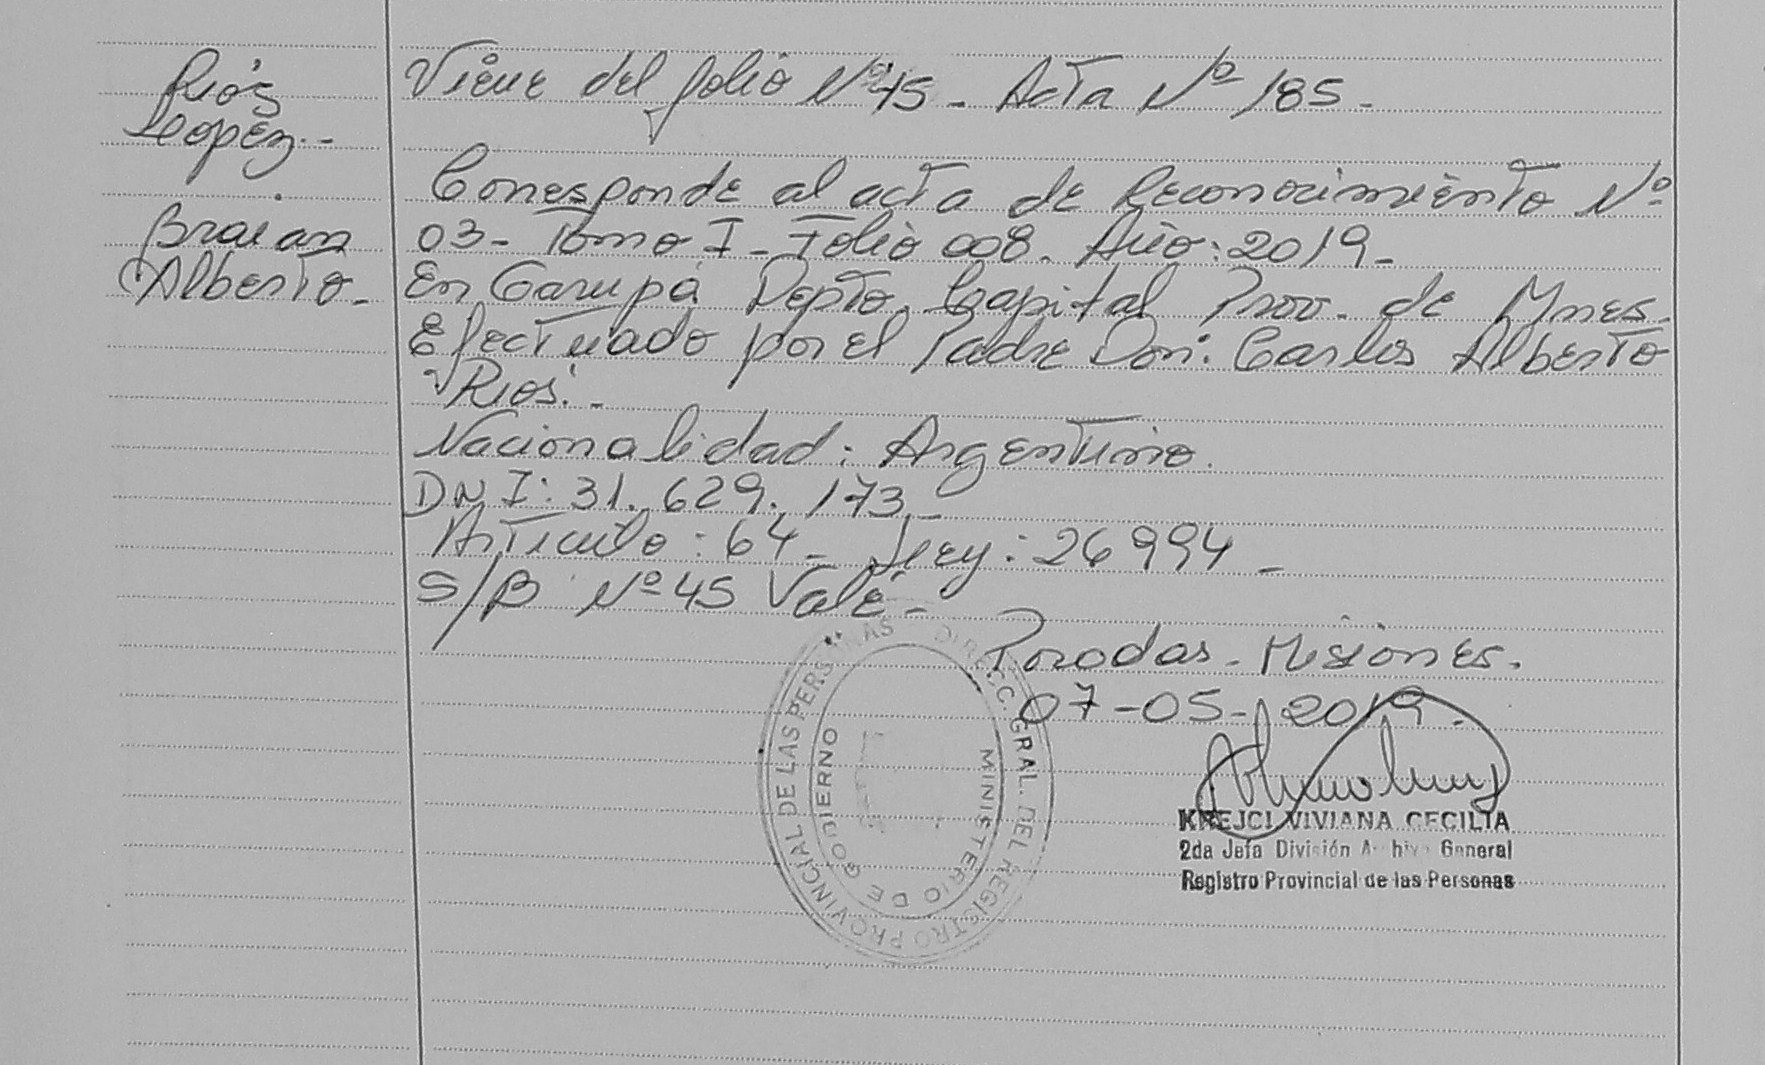 Ríos
Lopez.-
Braian
Alberto.-
Viene del folio Nº 45 - Acta Nº 185.-
Corresponde al acta de Reconocimiento Nº
03- Tomo I - Folio 008. Año: 2019-
En Garupá Depto. Capital Prov. de Mnes.
Efectuado por el Padre Don: Carlos Alberto
Rios.-
Nacionalidad: Argentino.
DNI: 31.629.173-
Articulo: 64- Ley: 26994-
S/B Nº 45 Vale-
Posadas - Misiones.
07-05-2019.
DIRECC. GRAL. DEL REGISTRO PROVINCIAL DE LAS PERSONAS
MINISTERIO DE GOBIERNO
KREJCI VIVIANA CECILIA
2da Jefa División Archivo General
Registro Provincial de las Personas